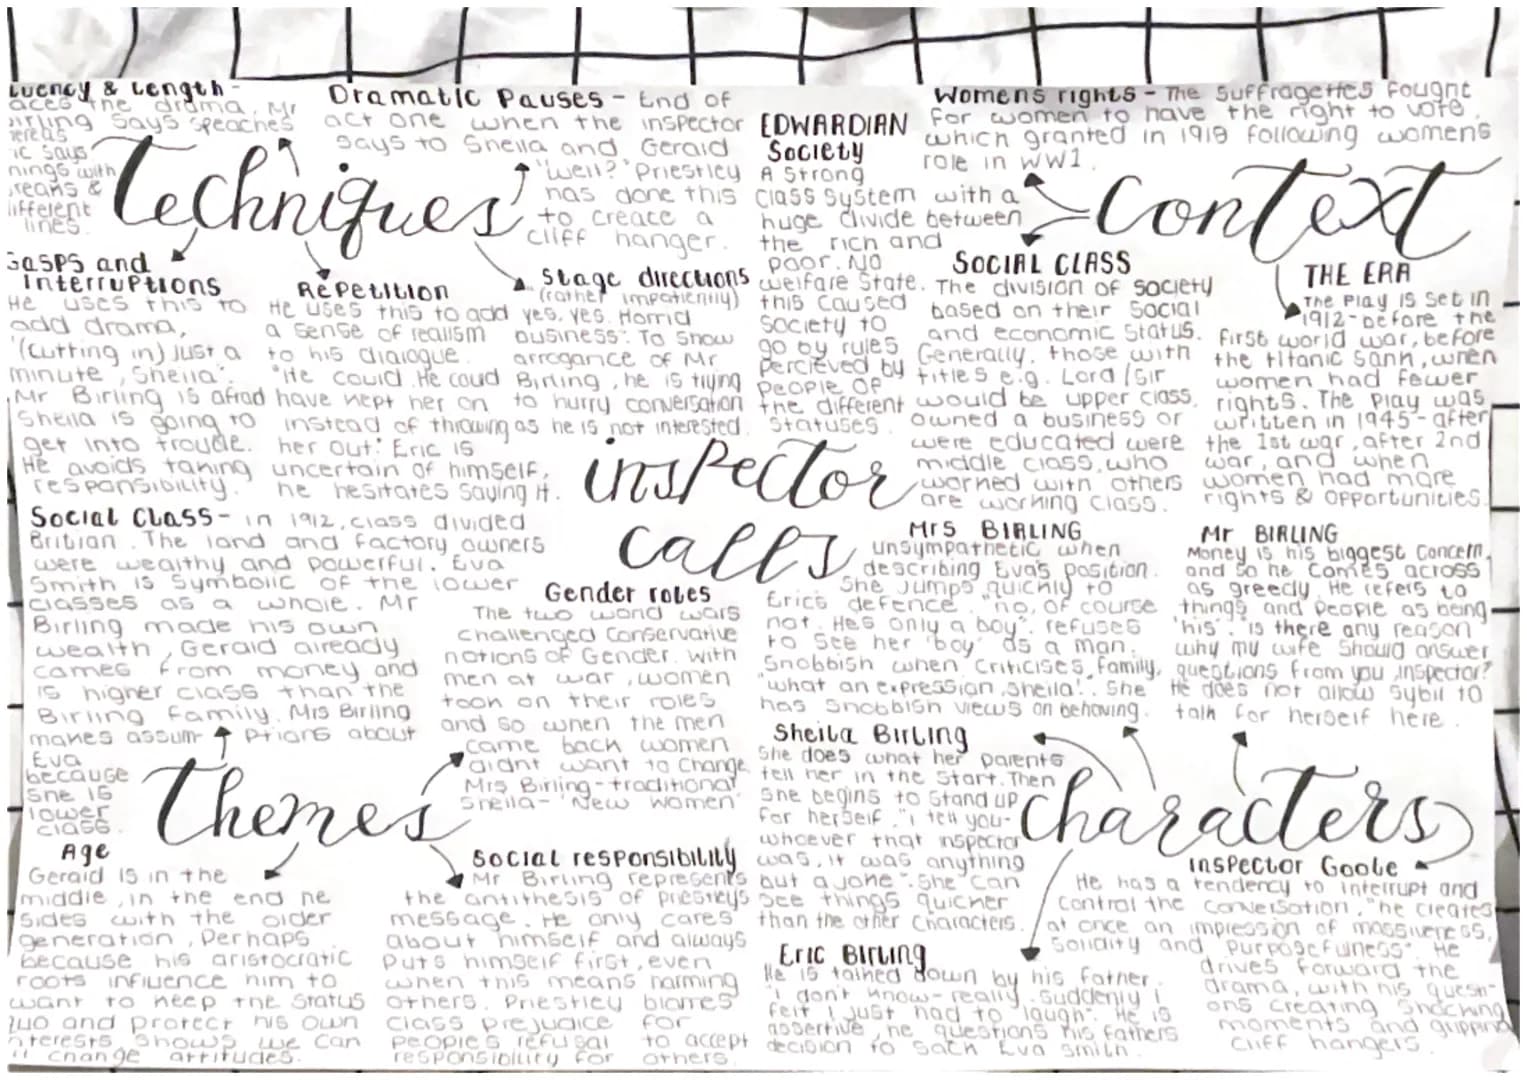 luency & Length -
aces the drama. Mr
irling says speaches
ereas
ic says
nings with
reans &
ifferent
lines.
Dramatic Pauses - End of
act one when the inspector
says to Sheila and Gerald
"well?" Priestley
has done this
to creace a
cliff hanger.
Techniques
Gasps and
Interruptions
He uses this to
add drama,
'(cutting in) Just a
minute, Sheila'.
Mr Birling is afraid
Sheila is going to
get into trouble.
He avoids taking
responsibility.
Repetition
He uses this to add
a sense of realism
to his dialogue.
"He could. He coud
have kept her on
instead of throwing
her out". Eric is
uncertain of himself,
he hesitates saying it.
Stage directions
(rather impatiently)
yes, yes. Horrid
business": To show
arrogance of Mr
Birling, he is trying
to hurry conversation
as he is not interested.
EDWARDIAN
Society
A Strong
class system with a
huge divide between
the rich and
poor. No
welfare state.
this caused
society to
go by rules
percieved by
people of
the different
statuses.
Womens rights - The suffragettes fought
for women to have the right to vote,
which granted in 1918 following womens
role in WW1.
Context
SOCIAL CLASS
The division of society
based on their social
and economic status.
Generally, those with
titles e.g. Lord/Sir
would be upper class,
owned a business or
were educated were
middle class, who
worked with others
are working class.
THE ERA
The play is set in
1912-before the
first world war, before
the titanic sank, when
women had fewer
rights. The play was
written in 1945-after
the 1st war, after 2nd
war, and when
women had more
rights & opportunities.
inspector
calls
Social Class - in 1912, class divided
Britian. The land and factory owners
were wealthy and powerful. Eva
Smith is symbolic of the lower
classes as a whole. Mr
Birling made his own
wealth, Gerald already
cames from money and
is higher class than the
Birling family. Mrs Birling
makes assum- ptions about
Eva
because
she is
lower
class.
Gender roles
The two world wars
challenged conservative
notions of Gender. With
men at war, women
took on their roles
and so when the men
came back women
didnt want to change.
Mrs Birling-traditional
Sheila- 'New women'
Themes
Age
Gerald is in the
middle, in the end he
sides with the older
generation, Perhaps
because his aristocratic
roots influence him to
want to keep the status
quo and protect his own
nterests shows we can
change attitudes.
Social responsibility
Mr Birling represents
the antithesis of priestleys
message. He only cares
about himself and always
puts himself first, even
when this means harming
others. Priestley blames
class prejudice for
people's refusal to accept
responsibility for others.
Mrs BIRLING
unsympathetic when
describing Eva's position.
She jumps quickly to
Eric's defence. "no, of course
not. He's only a boy". refuses
to see her 'boy' as a man.
Snobbish when criticises family,
"what an expression, Sheila!". She
has snobbish views on behaving.
Mr BIRLING
Money is his biggest concern,
and so he comes across
as greedy. He refers to
things and people as being
'his'. "is there any reason
why my wife should answer
questions from you, inspector?
He does not allow Sybil to
talk for herself here.
Sheila Birling
She does what her parents
tell her in the start. Then
she begins to stand up
for herself. "i tell you-
whoever that inspector
was, it was anything
but a joke". She can
see things quicker
than the other characters.
Characters
Inspector Goole
He has a tendency to interrupt and
control the conversation, "he creates
at once an impression of massiveness,
solidity and purposefulness". He
drives forward the
drama, with his questi-
ons creating shocking
moments and gripping
cliff hangers.
Eric Birling
He is talked down by his father.
"i don't know-really. Suddenly i
felt i just had to laugh". He is
assertive, he questions his fathers
decision to sack Eva Smith.